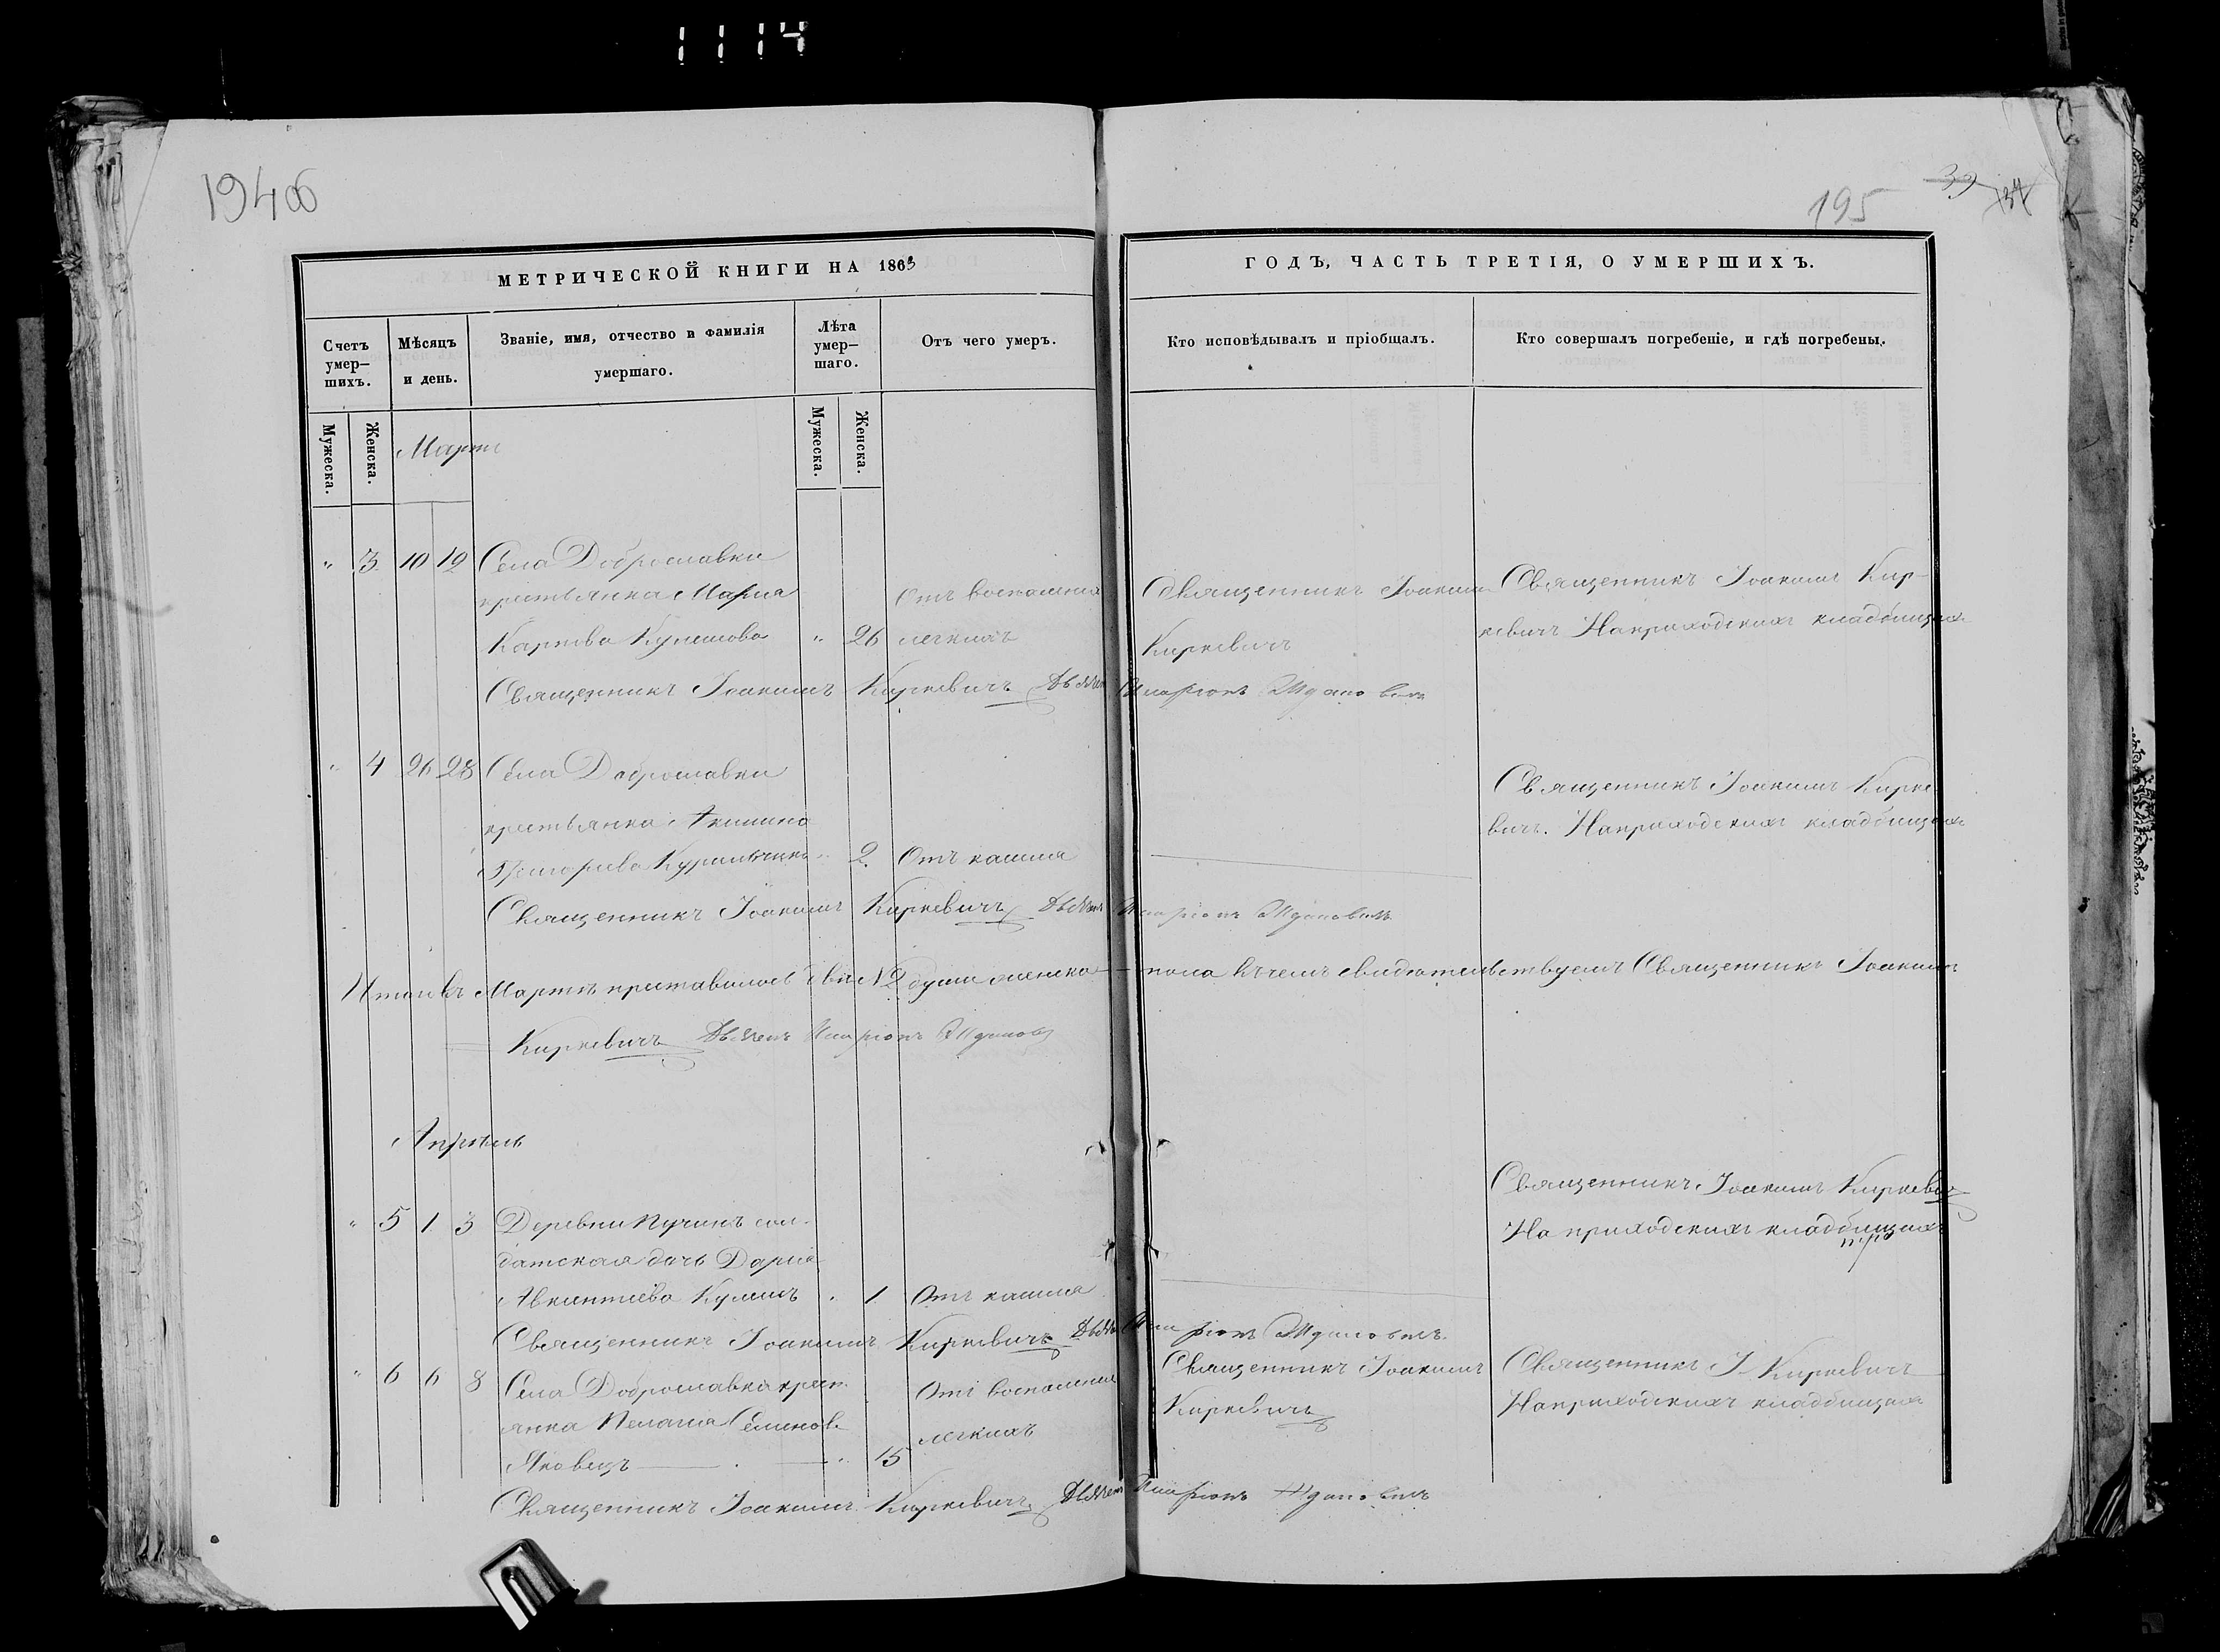 1114
194об
195
39
МЕТРИЧЕСКОЙ КНИГИ НА 1863
ГОДЪ, ЧАСТЬ ТРЕТІЯ, О УМЕРШИХЪ.
Счетъ умер–шихъ.
Мѣсяцъ и день.
Званіе, имя, отчество и фамилія умершаго.
Лѣта умер–шаго.
Отъ чего умеръ.
Кто исповѣдывалъ и пріобщалъ.
Кто совершалъ погребеніе, и гдѣ погребены.
Мужеска.
Женска.
Мужеска.
Женска.
Мартъ
" 3 10 12 Села Доброславки
крестьянка Марія
Карпова Кулешова " 26
Отъ воспаленія
легкихъ
Священникъ Іоакимъ
Киркевичъ
Священникъ Іоакимъ Кир-
кевичъ На приходскихъ кладбищахъ
Священникъ Іоакимъ Киркевичъ Дьячекъ Иларіонъ Ждановичъ
" 4 26 28 Села Доброславки
крестьянка Акилина
Григорьева 2 Отъ кашля
Священникъ Іоакимъ Кирке
вичъ. На приходскихъ кладбищахъ
Священникъ Іоакимъ Киркевичъ Дьячекъ Иларіонъ Ждановичъ
Итого въ Мартѣ преставилось двѣ №2 души женска пола въ чемъ свидѣтельствуемъ Священникъ Іоакимъ
Киркевичъ Дьячекъ Иларіонъ Ждановъ
Апрѣль
" 5 1 3 Деревни Пучинъ сол-
датская дочь Дарія
Авксентіева Кулишъ " 1 Отъ кашля
Священникъ Іоакимъ Киркевичъ
На приходскихъ кладбищахъ
Священникъ Іоакимъ Киркевичъ Дьячекъ Иларіонъ Ждановичъ
" 6 6 8 Села Доброславки крест-
янка Пелагіа Семенова
Яковецъ " 15
Отъ воспаленія
легкихъ
Священникъ Іоакимъ
Киркевичъ
Священникъ І Киркевичъ
На приходскихъ кладбищахъ
Священникъ Іоакимъ Киркевичъ Дьячекъ Иларіонъ Ждановичъ